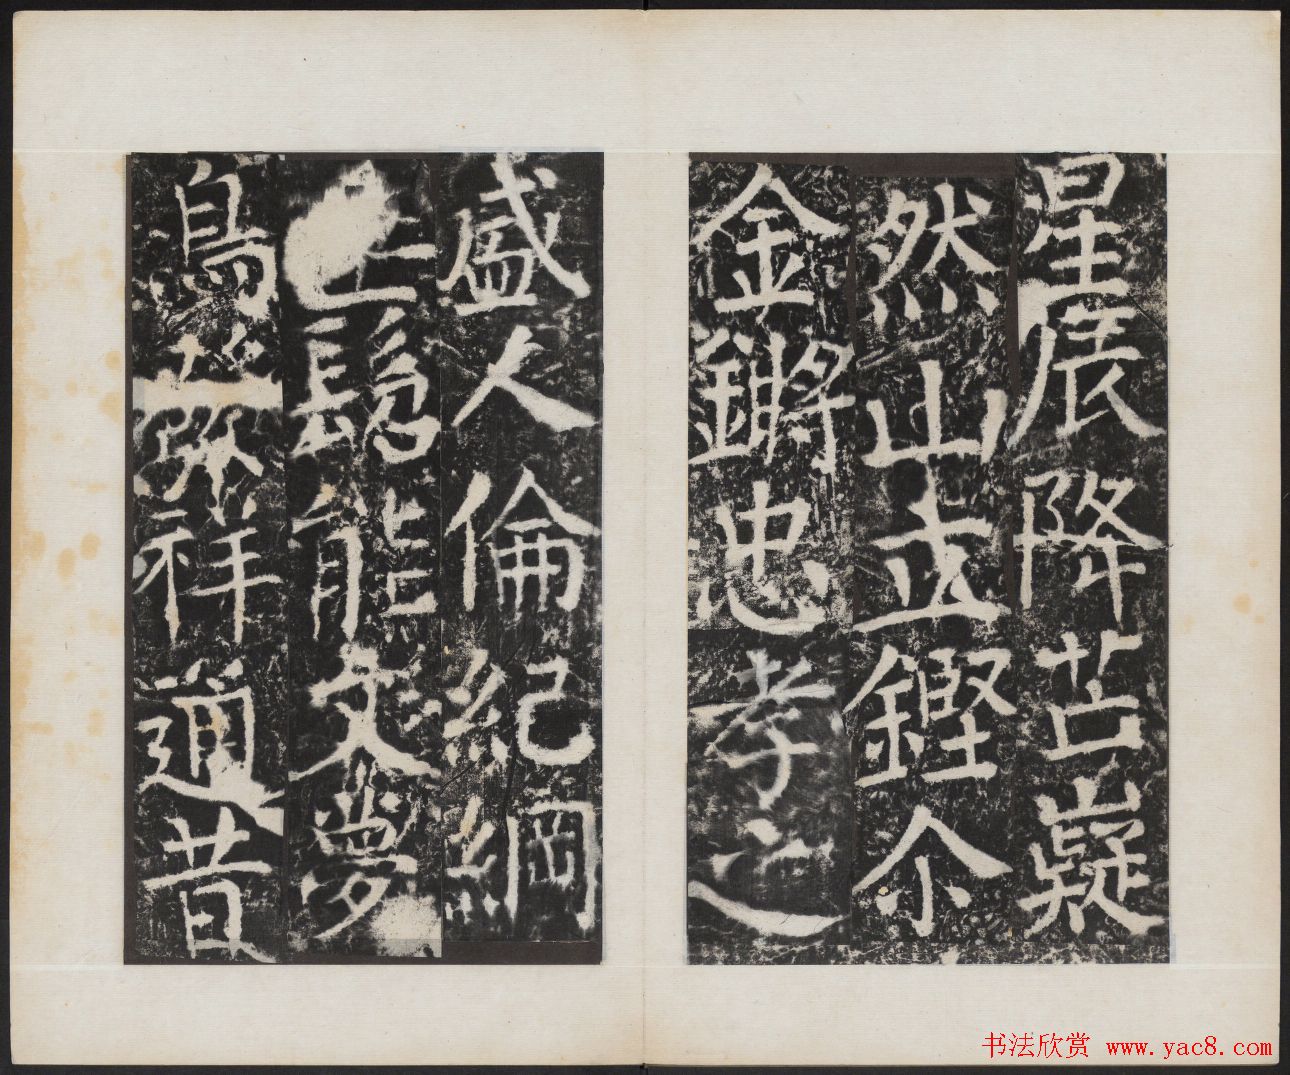 星辰降芒嶷
然山立鏗尒
金鏘忠孝之
盛人倫紀綱
髫能文夢
鳥發祥道昔
书法欣赏 www.yac8.com